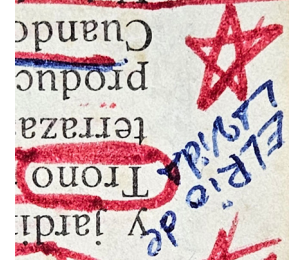 y jardi
Trono
terraza
produc
Cuando
EL Rio de
La vida